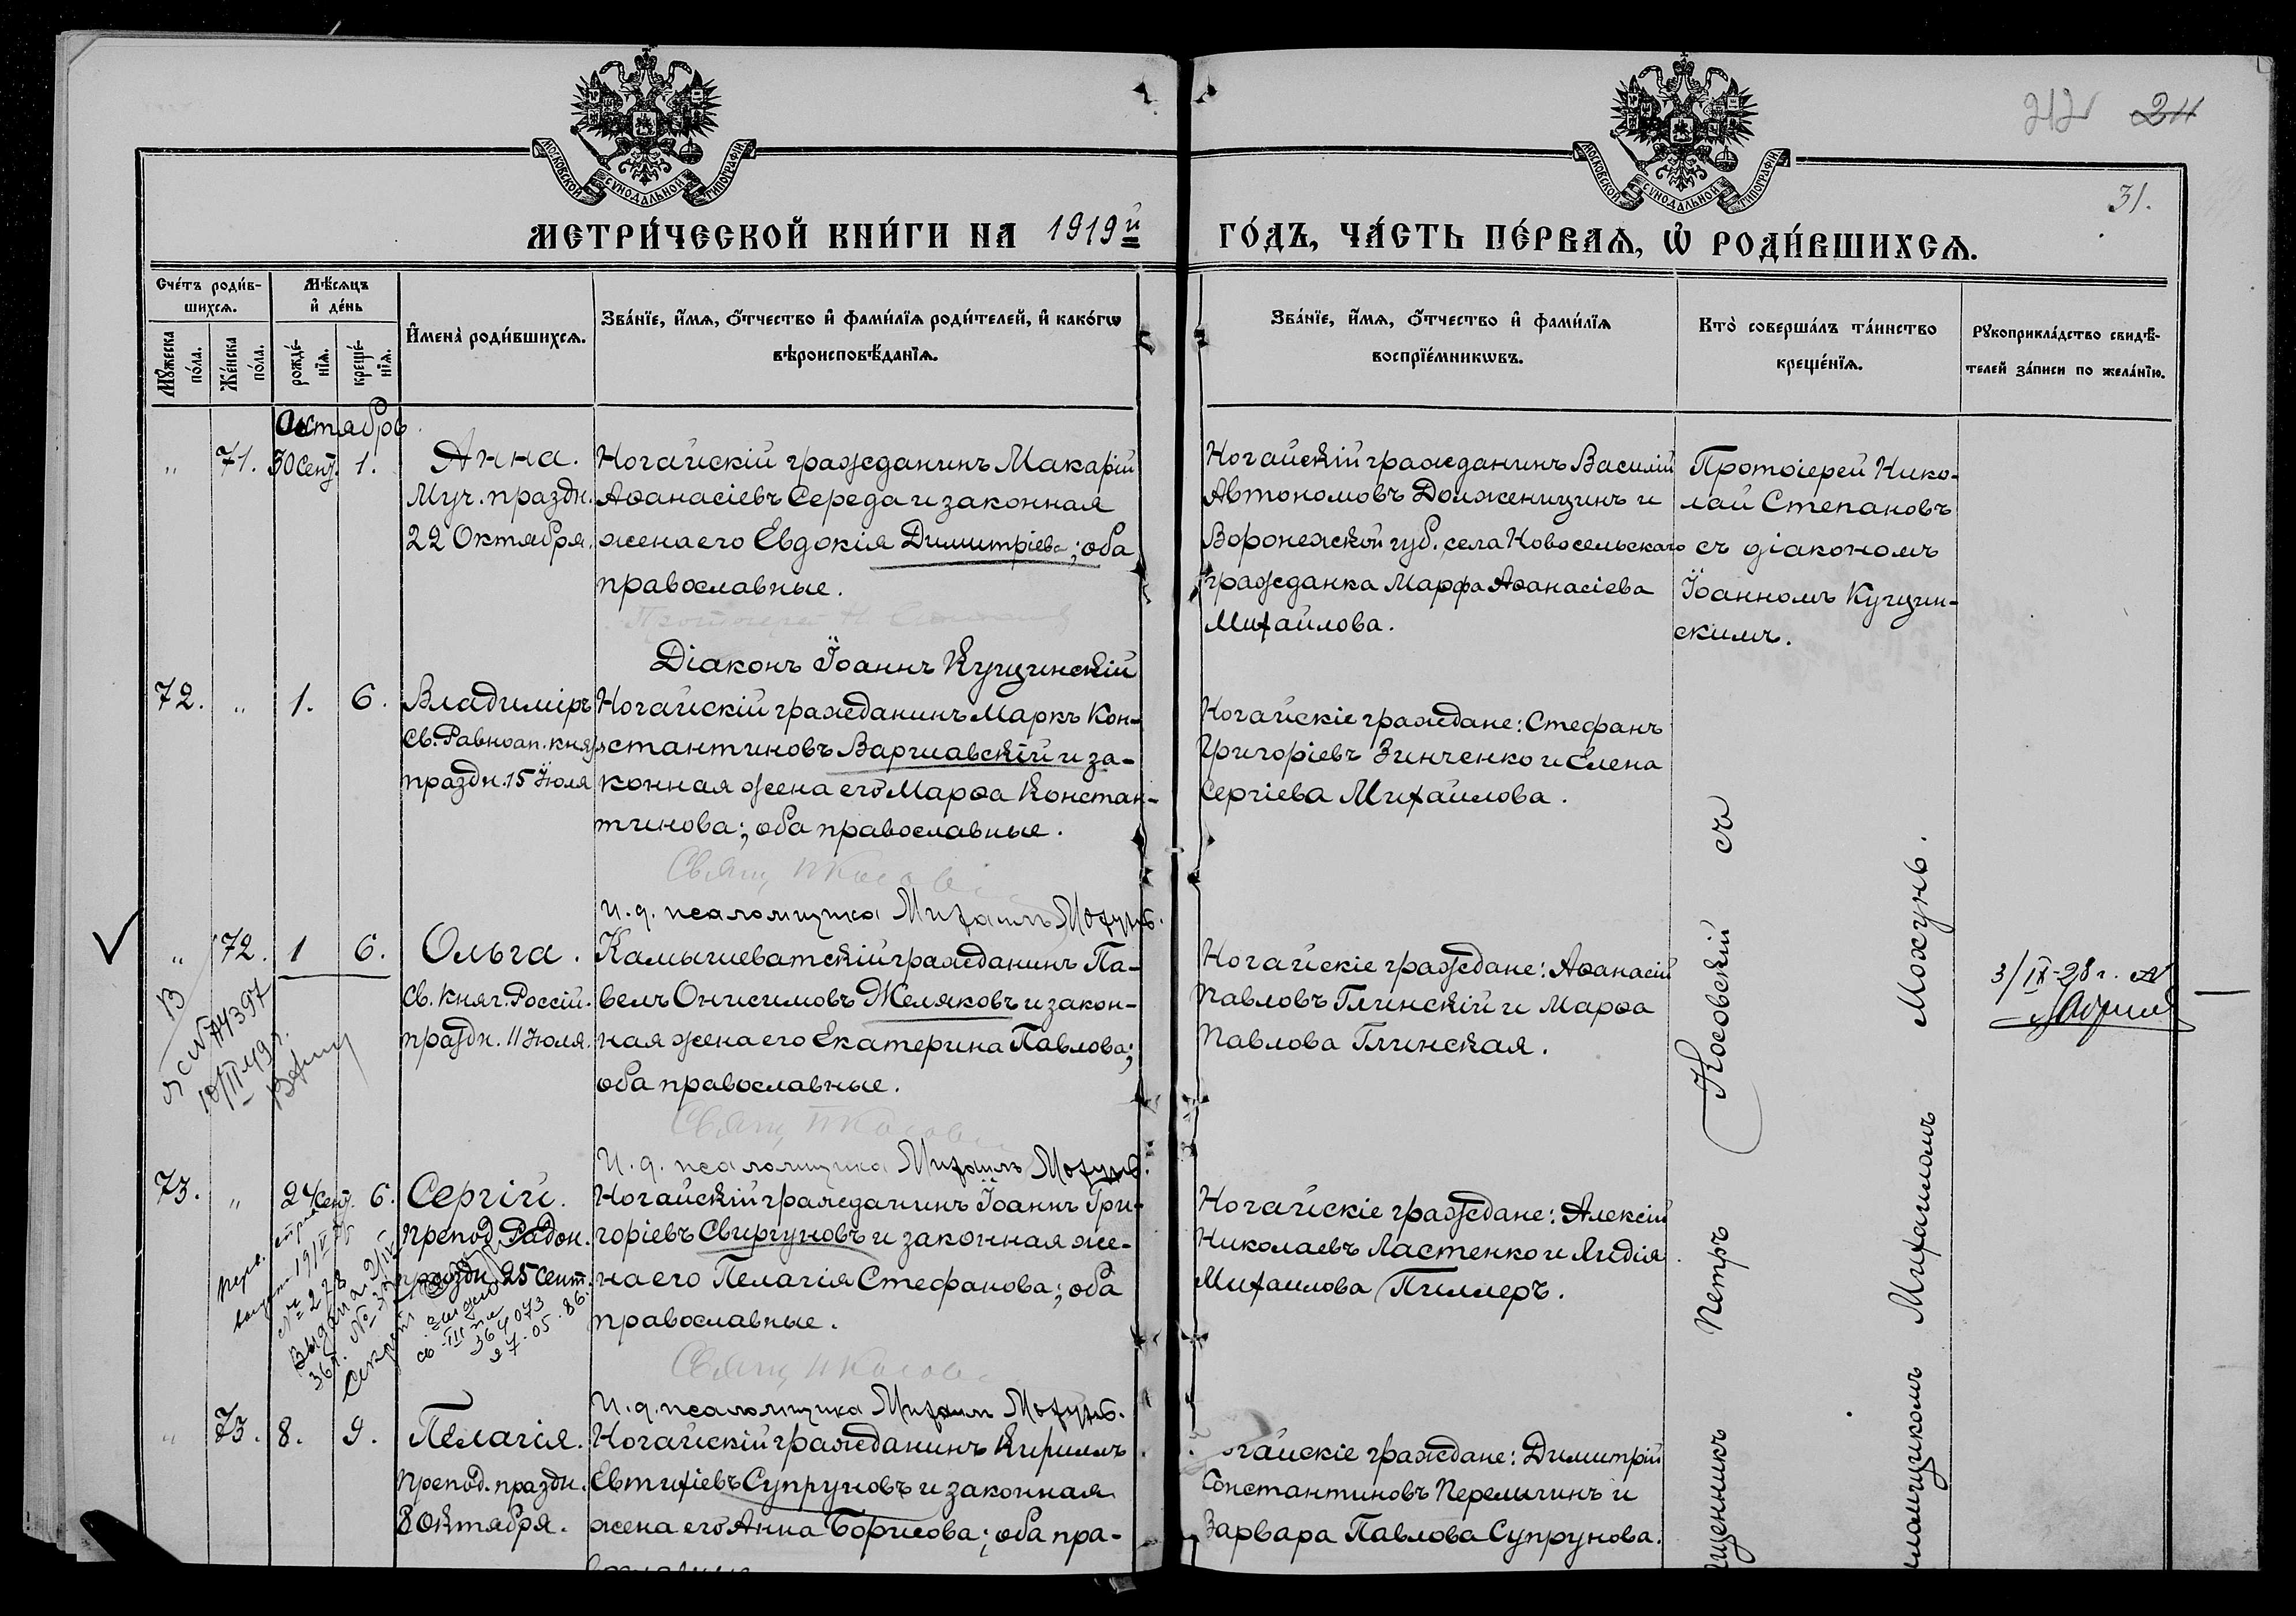 МОСКОВСКОЙ СѴНОДАЛЬНОЙ ТИПОГРАФІИ
МОСКОВСКОЙ СѴНОДАЛЬНОЙ ТИПОГРАФІИ
212 211
31.
МЕТРИ́ЧЕСКОЙ КНИ́ГИ НА 1919й
ГО́ДЪ, ЧА́СТЬ ПЕ́РВАѦ, Ѡ РОДИ́ВШИХСѦ.
Сче́тъ роди́в-
шихсѧ.
Мꙋжеска по́ла.
Же́нска по́ла.
Мѣ́сѧцъ
и҆ де́нь
рожде́-
нїѧ.
креще́-
нїѧ.
И҆мена̀ роди́вшихсѧ.
Зва́нїе, и҆́мѧ, ѻ҆́тчество и҆ фами́лїѧ роди́телей, и҆ како́гѡ
вѣроисповѣ́данїѧ.
Зва́нїе, и҆́мѧ, ѻ҆́тчество и҆ фами́лїѧ
воспрїе́мникѡвъ.
Кто̀ соверша́лъ та́инство
креще́нїѧ.
Рꙋкоприкла́дство свидѣ́-
телей за́писи по жела́нїю.
Октябрь
" 71. 30 Сент. 1.
Анна.
Муч. праздн.
22 Октября.
Ногайскій гражданинъ Макарій
Аѳанасіевъ Середа и законная
жена его Евдокія Димитріева; оба
православные.
Діаконъ Іоаннъ Кущинскій
Ногайскій гражданинъ Василій
Автономовъ Долженицинъ и
Воронежской губ., села Новосельскаго
гражданка Марфа Аѳанасіева
Михайлова.
Протоіерей Нико-
лай Степановъ
съ діакономъ
Іоанномъ Кущин-
скимъ.
72. " 1. 6.
Владиміръ
Св. Равноап. князя
праздн. 15 Іюля
Ногайскій гражданинъ Маркъ Кон-
стантиновъ Варшавскій и за-
конная жена его Марѳа Констан-
тинова; оба православные.
И. д. псаломщика Михаилъ Мохунь.
Ногайскіе граждане: Стефанъ
Григоріевъ Зинченко и Елена
Сергіева Михайлова.
" 72. 1 6.
Ольга.
Св. княг. Россій.
праздн. 11 Іюля.
Камышеватскій гражданинъ Па-
велъ Онисимовъ Желяковъ и закон-
ная жена его Екатерина Павлова;
оба православные.
И. д. псаломщика Михаилъ Мохунь.
Ногайскіе граждане: Аѳанасій
Павловъ Глинскій и Марѳа
Павлова Глинская.
3/IX-28 г.
73. " 24 Сент. 6.
Сергій.
препод. Радон.
праздн. 25 Сент.
364073
27.05.86.
Ногайскій гражданинъ Іоаннъ Гри-
горіевъ Свиргуновъ и законная же-
на его Пелагія Стефанова; оба
православные.
И. д. псаломщика Михаилъ Мохунь.
Ногайскіе граждане: Алексій
Николаевъ Ластенко и Лидія
Михайлова Пиллеръ.
" 73. 8. 9.
Пелагія.
Препод. праздн.
8 Октября.
Ногайскій гражданинъ Кириллъ
Евтихіевъ Супруновъ и законная
жена его Анна Борисова; оба пра-
гайскіе граждане: Димитрій
Константиновъ Перемичинъ и
Варвара Павлова Супрунова.
щенникъ Петръ Косовскій съ
ломщикомъ Михаиломъ Мохунь.